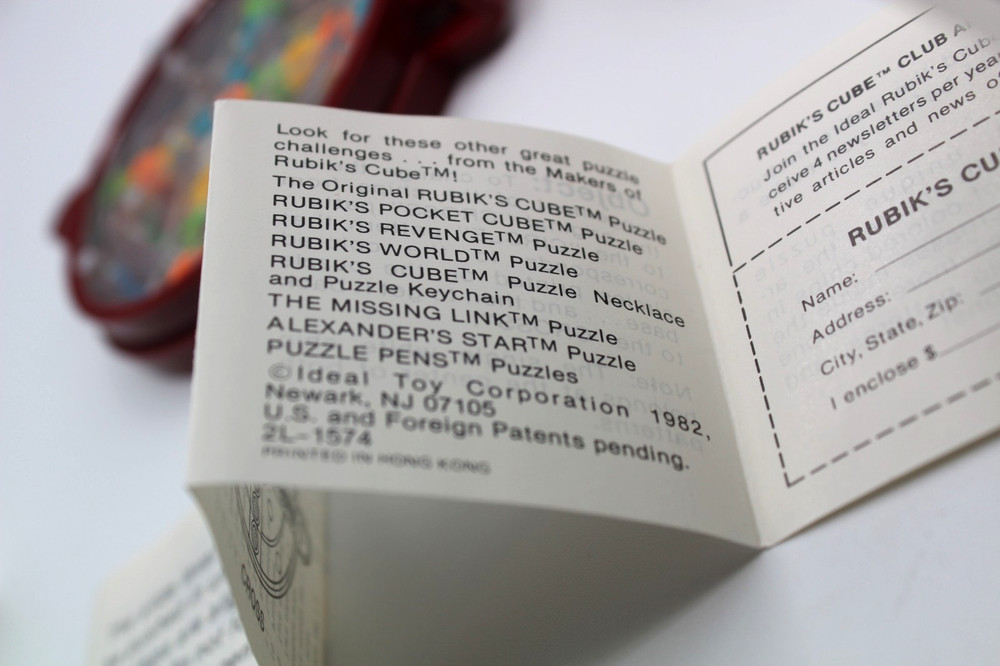 Look for these other great puzzle
challenges . . . from the Makers of
Rubik's Cube™!
The Original RUBIK'S CUBE™ Puzzle
RUBIK'S POCKET CUBE™ Puzzle
RUBIK'S REVENGE™ Puzzle
RUBIK'S WORLD™ Puzzle
RUBIK'S CUBE™ Puzzle Necklace
and Puzzle Keychain
THE MISSING LINK™ Puzzle
ALEXANDER'S STAR™ Puzzle
PUZZLE PENS™ Puzzles
©Ideal Toy Corporation 1982,
Newark, NJ 07105
U.S. and Foreign Patents pending.
2L-1574
PRINTED IN HONG KONG
RUBIK'S CUBE™ CLUB
Join the Ideal Rubik's Cub
ceive 4 newsletters per yea
tive articles and news o
RUBIK'S CU
Name:
Address:
City, State, Zip:
I enclose $